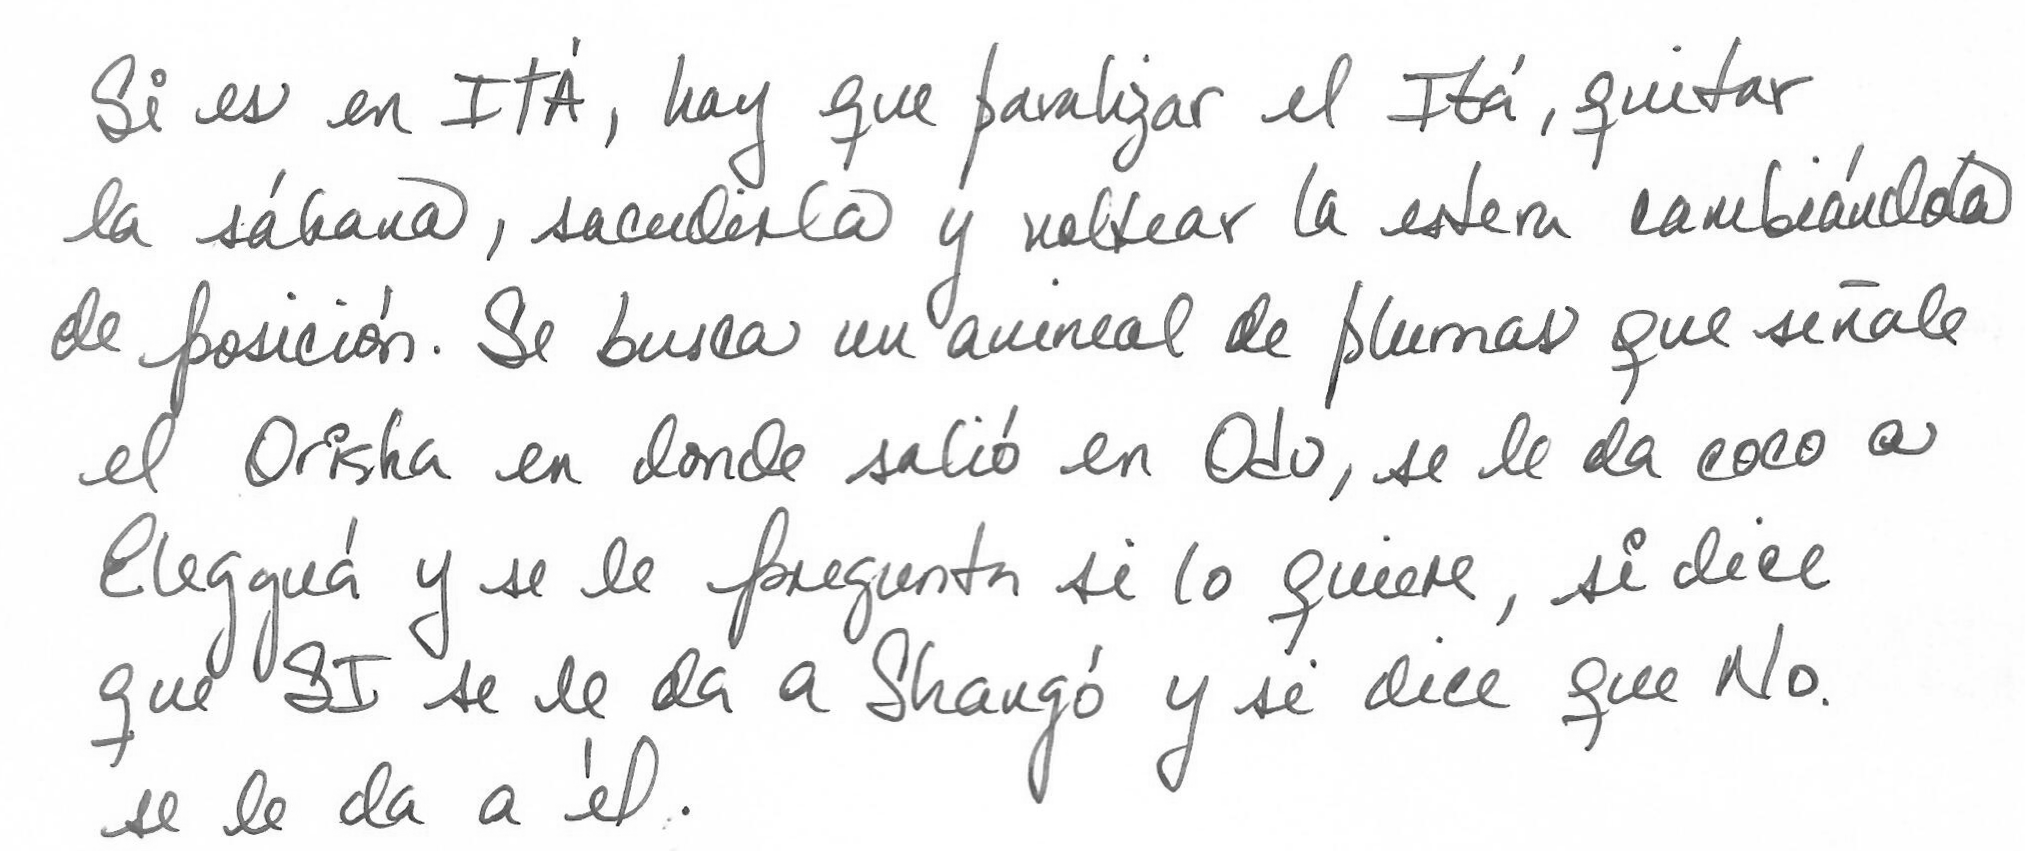 Si es en ITÁ, hay que paralizar el Itá, quitar
la sábana, sacudirla y voltear la estera cambiándola
de posición. Se busca un animal de plumas que señale
el Orisha en donde salió en Odu, se le da coco a
Eleggua y se le pregunta si lo quiere, si dice
que SI se le da a Shangó y si dice que No.
se le da a él.